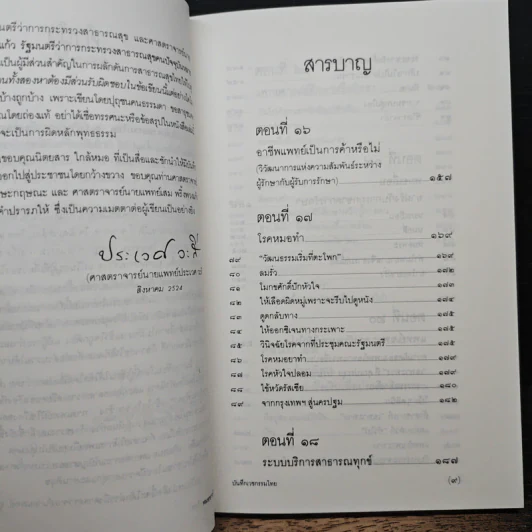 ตรีว่าการกระทรวงสาธารณสุข และศาสตราจารย์นาย
แก้ว รัฐมนตรีว่าการกระทรวงสาธารณสุขคนปัจจุบัน
เป็นผู้มีส่วนสำคัญในการผลักดันการสาธารณสุขไทย
นทั้งสองหาต้องมีส่วนรับผิดชอบในข้อเขียนนี้แต่อย่างใด
บ้างถูกบ้าง เพราะเขียนโดยปุถุชนคนธรรมดา
ณโดยถ่องแท้ อย่าได้เชื่อทรรศนะหรือข้อสรุปในหนังสือ
จะเป็นการผิดหลักพุทธธรรม
ขอบคุณนิตยสาร ใกล้หมอ ที่เป็นสื่อและชักนำให้
ออกไปสู่ประชาชนโดยกว้างขวาง ขอบคุณท่านศาสตราจา
ษะกฤษณะ และ ศาสตราจารย์นายแพทย์เสม พริ้งพวง
คำปรารภให้ ซึ่งเป็นความเมตตาต่อผู้เขียนเป็นอย่างยิ่ง
ประเวศ วะสี
(ศาสตราจารย์นายแพทย์ประเวศ
สิงหาคม ๒๕๒๕
สารบาญ
ตอนที่ ๑๖
อาชีพแพทย์เป็นการค้าหรือไม่
(วิวัฒนาการแห่งความสัมพันธ์ระหว่าง
ผู้รักษากับผู้รับการรักษา) ๑๕๗
ตอนที่ ๑๗
โรคหมอทำ ๑๖๙
๗๙ "วัฒนธรรมเริ่มที่ตะโพก" ๑๖๙
๘๐ ลมรั่ว ๑๗๒
๘๑ โมกขศักดิ์ปักหัวใจ ๑๗๓
๘๒ ให้เลือดผิดหมู่เพราะจะรีบไปดูหนัง ๑๗๔
๘๓ ดูดกลับทาง ๑๗๕
๘๔ ให้ออกซิเจนทางกระเพาะ ๑๗๕
๘๕ วินิจฉัยโรคจากที่ประชุมคณะรัฐมนตรี ๑๗๕
๘๖ โรคหมอยาทำ ๑๗๗
๘๗ โรคหัวใจปลอม ๑๗๙
๘๘ ไข้หวัดรัสเซีย ๑๘๐
๘๙ จากกรุงเทพฯ สู่นครปฐม ๑๘๒
ตอนที่ ๑๘
ระบบบริการสาธารณทุกข์ ๑๘๗
บันทึกเวชกรรมไทย (๙)